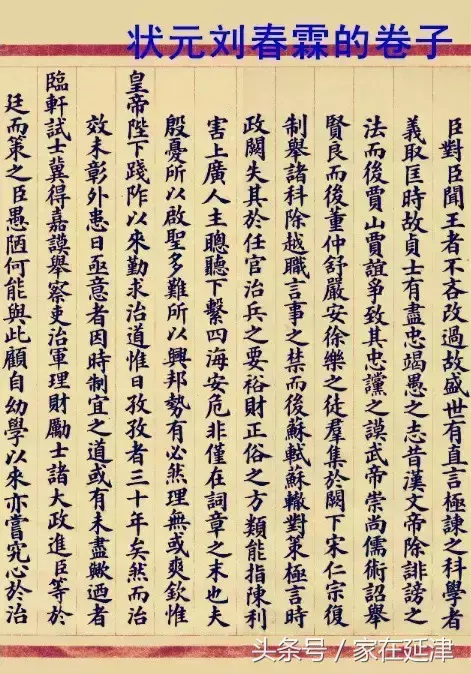 状元刘春霖的卷子
臣對臣聞王者不吝改過故盛世有直言極諫之科學者
義取匡時故貞士有盡忠竭愚之志昔漢文帝除誹謗之
法而後賈山賈誼爭致其忠讜之謨武帝崇尚儒術詔舉
賢良而後董仲舒嚴安徐樂之徒羣集於闕下宋仁宗復
制舉諸科除越職言事之禁而後蘇軾蘇轍對策極言時
政闕失其於任官治兵之要裕財正俗之方類能指陳利
害上廣人主聰聽下繫四海安危非僅在詞章之末也夫
殷憂所以啟聖多難所以興邦勢有必然理無或爽欽惟
皇帝陛下踐阼以來勤求治道惟日孜孜者三十年矣然而治
效未彰外患日亟意者因時制宜之道或有未盡歟迺者
臨軒試士冀得嘉謨舉察吏治軍理財勵士諸大政進臣等於
廷而策之臣愚陋何能與此顧自幼學以來亦嘗究心於治
头条号 / 家在延津